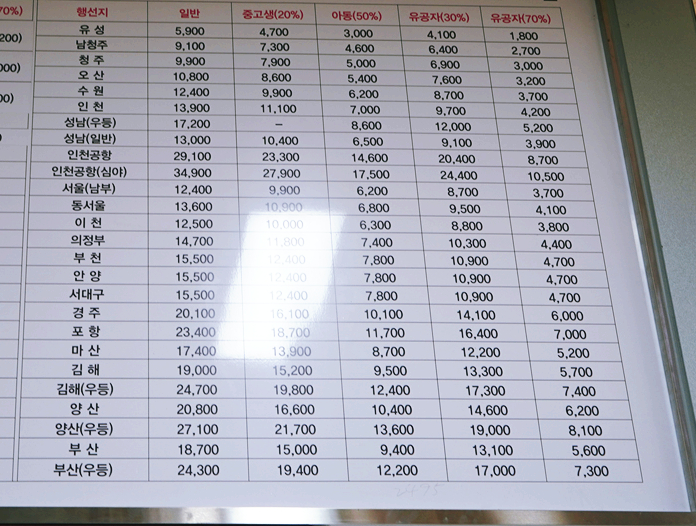 70%) 행선지 일반 중고생(20%) 아동(50%) 유공자(30%) 유공자(70%)
200) 유 성 5,900 4,700 3,000 4,100 1,800
남청주 9,100 7,300 4,600 6,400 2,700
000) 청 주 9,900 7,900 5,000 6,900 3,000
오 산 10,800 8,600 5,400 7,600 3,200
00) 수 원 12,400 9,900 6,200 8,700 3,700
인 천 13,900 11,100 7,000 9,700 4,200
성남(우등) 17,200 – 8,600 12,000 5,200
성남(일반) 13,000 10,400 6,500 9,100 3,900
인천공항 29,100 23,300 14,600 20,400 8,700
인천공항(심야) 34,900 27,900 17,500 24,400 10,500
서울(남부) 12,400 9,900 6,200 8,700 3,700
동서울 13,600 10,900 6,800 9,500 4,100
이 천 12,500 10,000 6,300 8,800 3,800
의정부 14,700 11,800 7,400 10,300 4,400
부 천 15,500 12,400 7,800 10,900 4,700
안 양 15,500 12,400 7,800 10,900 4,700
서대구 15,500 12,400 7,800 10,900 4,700
경 주 20,100 16,100 10,100 14,100 6,000
포 항 23,400 18,700 11,700 16,400 7,000
마 산 17,400 13,900 8,700 12,200 5,200
김 해 19,000 15,200 9,500 13,300 5,700
김해(우등) 24,700 19,800 12,400 17,300 7,400
양 산 20,800 16,600 10,400 14,600 6,200
양산(우등) 27,100 21,700 13,600 19,000 8,100
부 산 18,700 15,000 9,400 13,100 5,600
부산(우등) 24,300 19,400 12,200 17,000 7,300